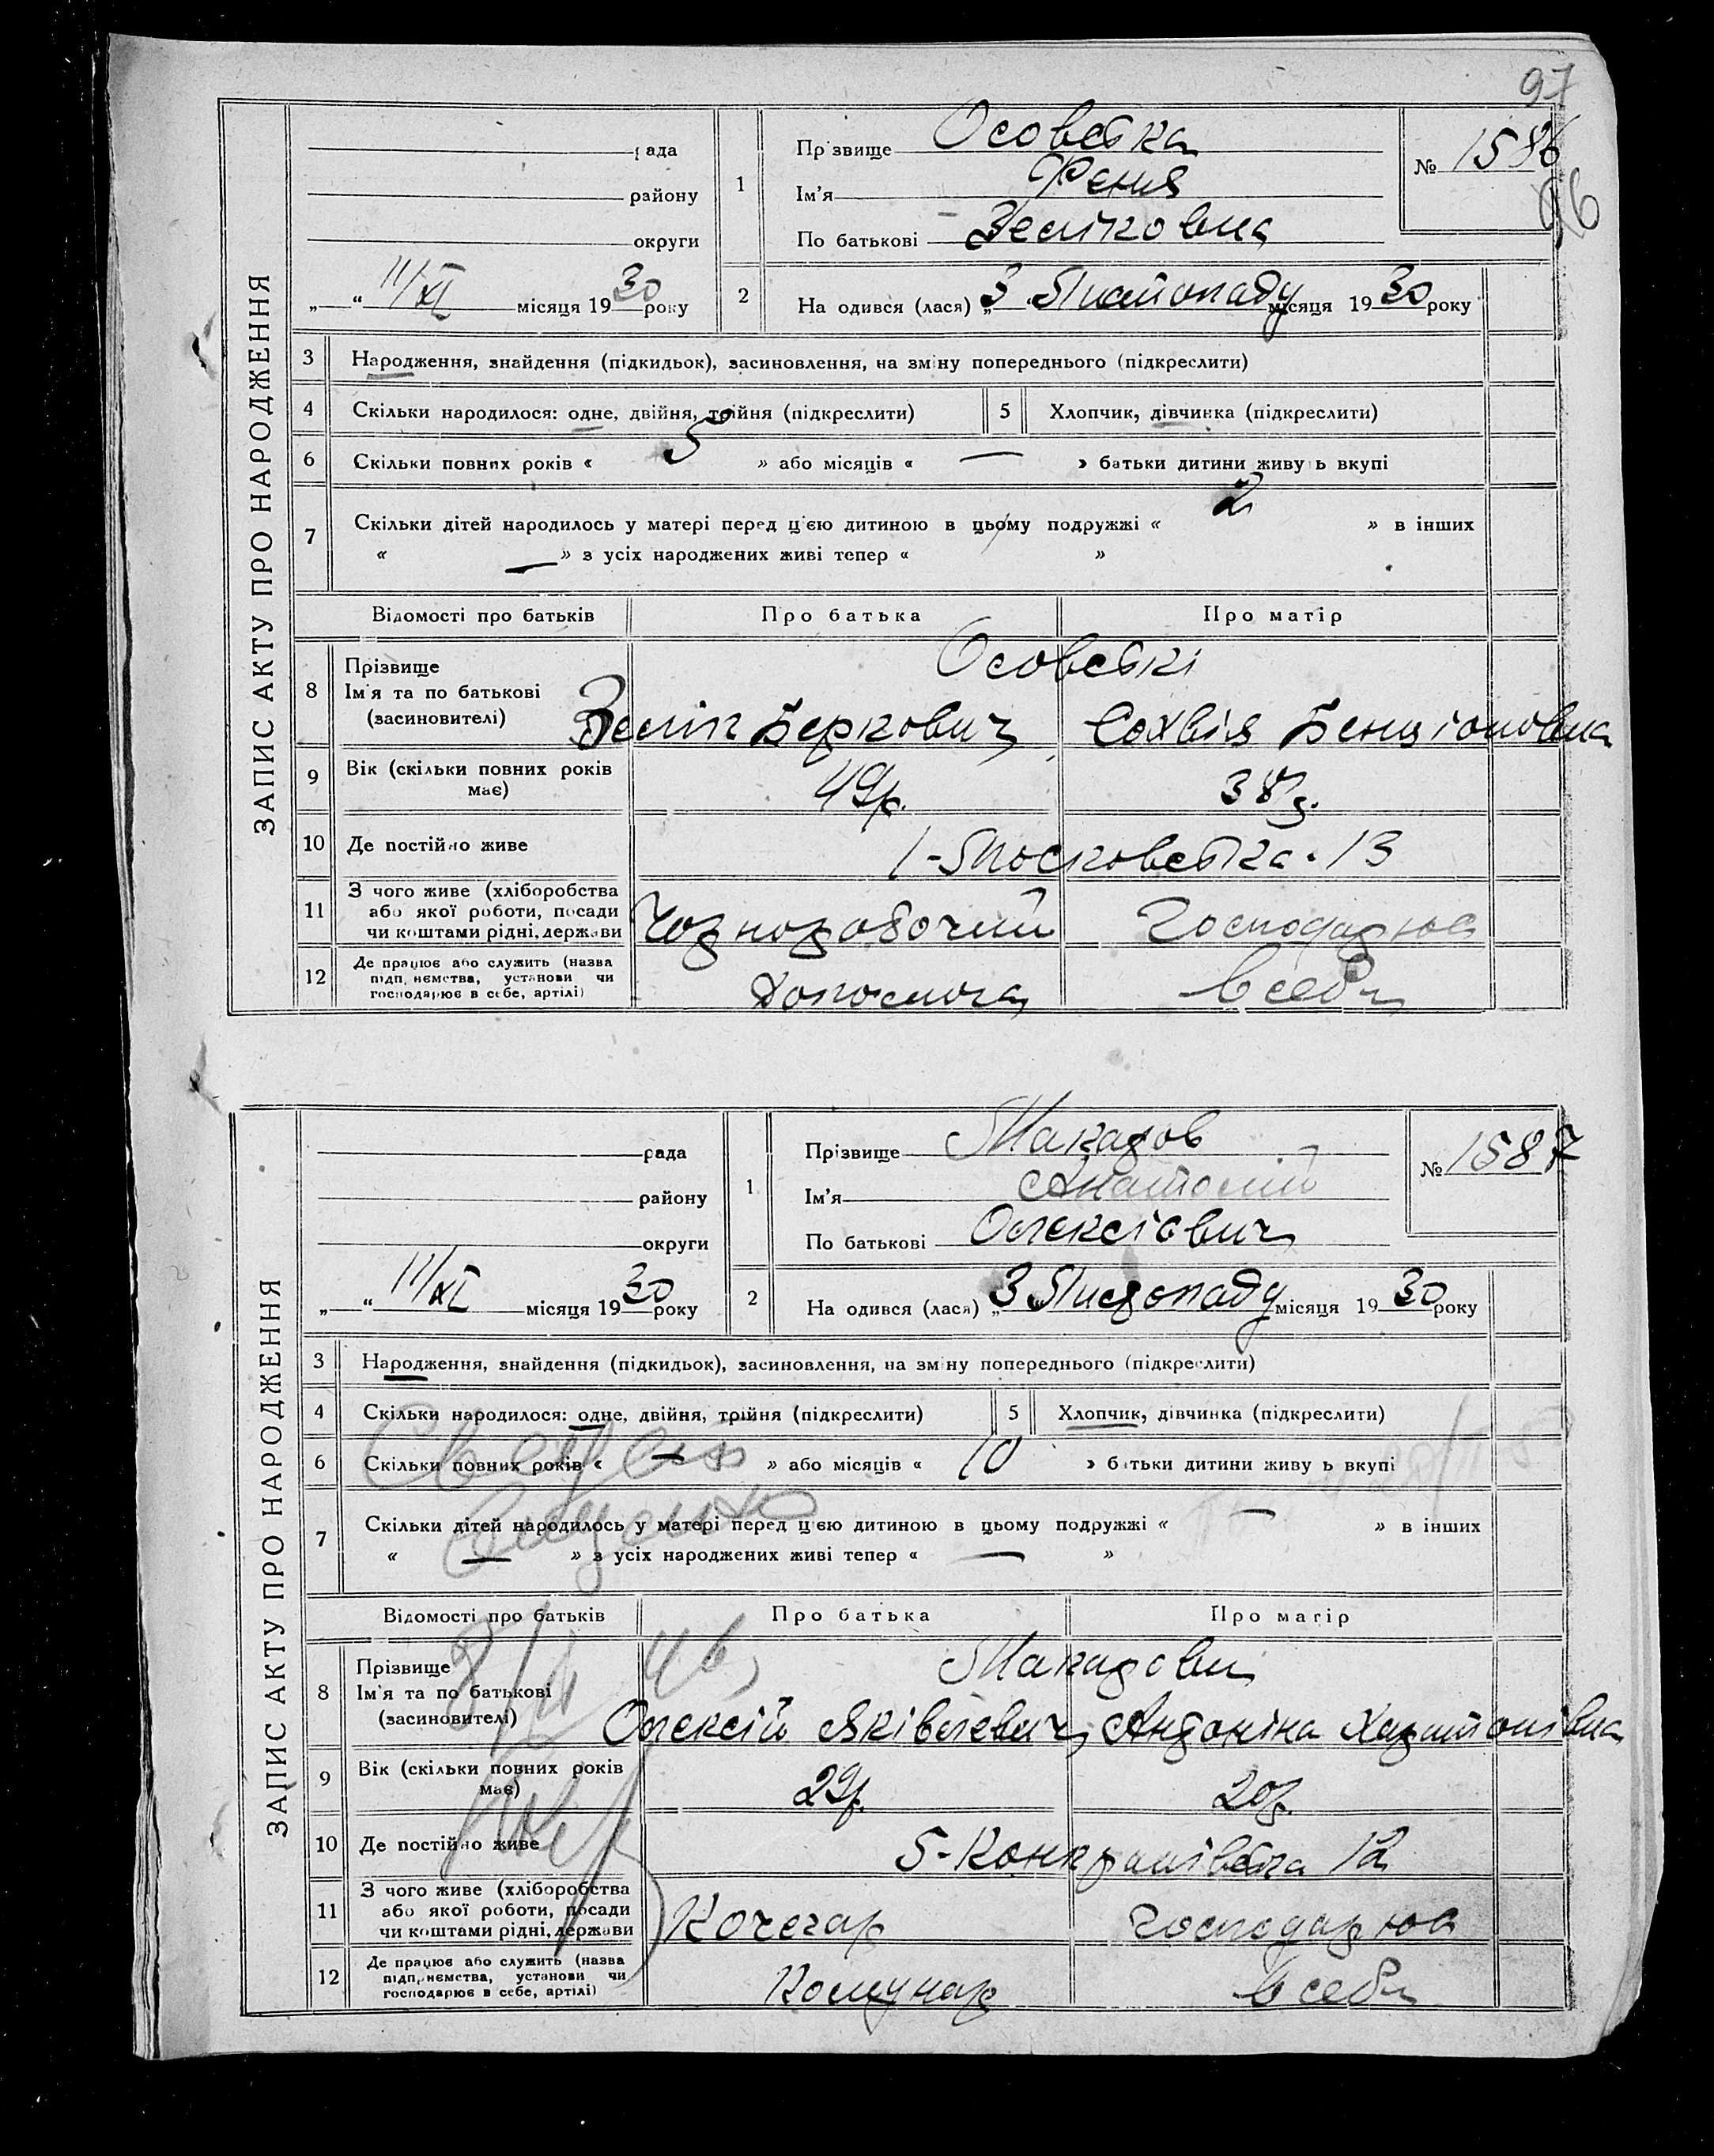 97
ЗАПИС АКТУ ПРО НАРОДЖЕННЯ
рада
району
округи
„ “ 11/XI місяця 1930 року
1
Прізвище Осовська
Ім'я Феня
По батькові Зеліковна
№ 1586
96
2
На одився (лася) „3 Листопаду місяця 1930 року
3 Народження, знайдення (підкидьок), засиновлення, на зміну попереднього (підкреслити)
4 Скільки народилося: одне, двійня, трійня (підкреслити) 5 Хлопчик, дівчинка (підкреслити)
6 Скільки повних років « 5 » або місяців « — » батьки дитини живуть вкупі
7 Скільки дітей народилось у матері перед цією дитиною в цьому подружжі « 2 » в інших
« — » з усіх народжених живі тепер « »
Відомості про батьків Про батька Про матір
8 Прізвище
Ім'я та по батькові
(засиновителі)
Осовські
Зелік Беркович Софвія Бенціоновна
9 Вік (скільки повних років має) 49р. 38р.
10 Де постійно живе 1-Московська 13
11 З чого живе (хліборобства
або якої роботи, посади
чи коштами рідні, держави
Чорноробочий Господарює
12 Де працює або служить (назва
підприємства, установи чи
господарює в себе, артілі)
Допомога В себе
ЗАПИС АКТУ ПРО НАРОДЖЕННЯ
рада
району
округи
„ “ 11/XI місяця 1930 року
1
Прізвище Макаров
Ім'я Анатолій
По батькові Олексієвич
№ 1587
2
На одився (лася) „3 Листопаду місяця 1930 року
3 Народження, знайдення (підкидьок), засиновлення, на зміну попереднього (підкреслити)
4 Скільки народилося: одне, двійня, трійня (підкреслити) 5 Хлопчик, дівчинка (підкреслити)
6 Скільки повних років « — » або місяців « 10 » батьки дитини живуть вкупі
7 Скільки дітей народилось у матері перед цією дитиною в цьому подружжі « — » в інших
« — » з усіх народжених живі тепер « — »
Відомості про батьків Про батька Про матір
8 Прізвище
Ім'я та по батькові
(засиновителі)
Макарови
Олексій Яківлевич Антоніна Харитонівна
9 Вік (скільки повних років має) 29р. 20р.
10 Де постійно живе 5- 12
11 З чого живе (хліборобства
або якої роботи, посади
чи коштами рідні, держави
Кочегар Господарює
12 Де працює або служить (назва
підприємства, установи чи
господарює в себе, артілі)
Комунар В себе